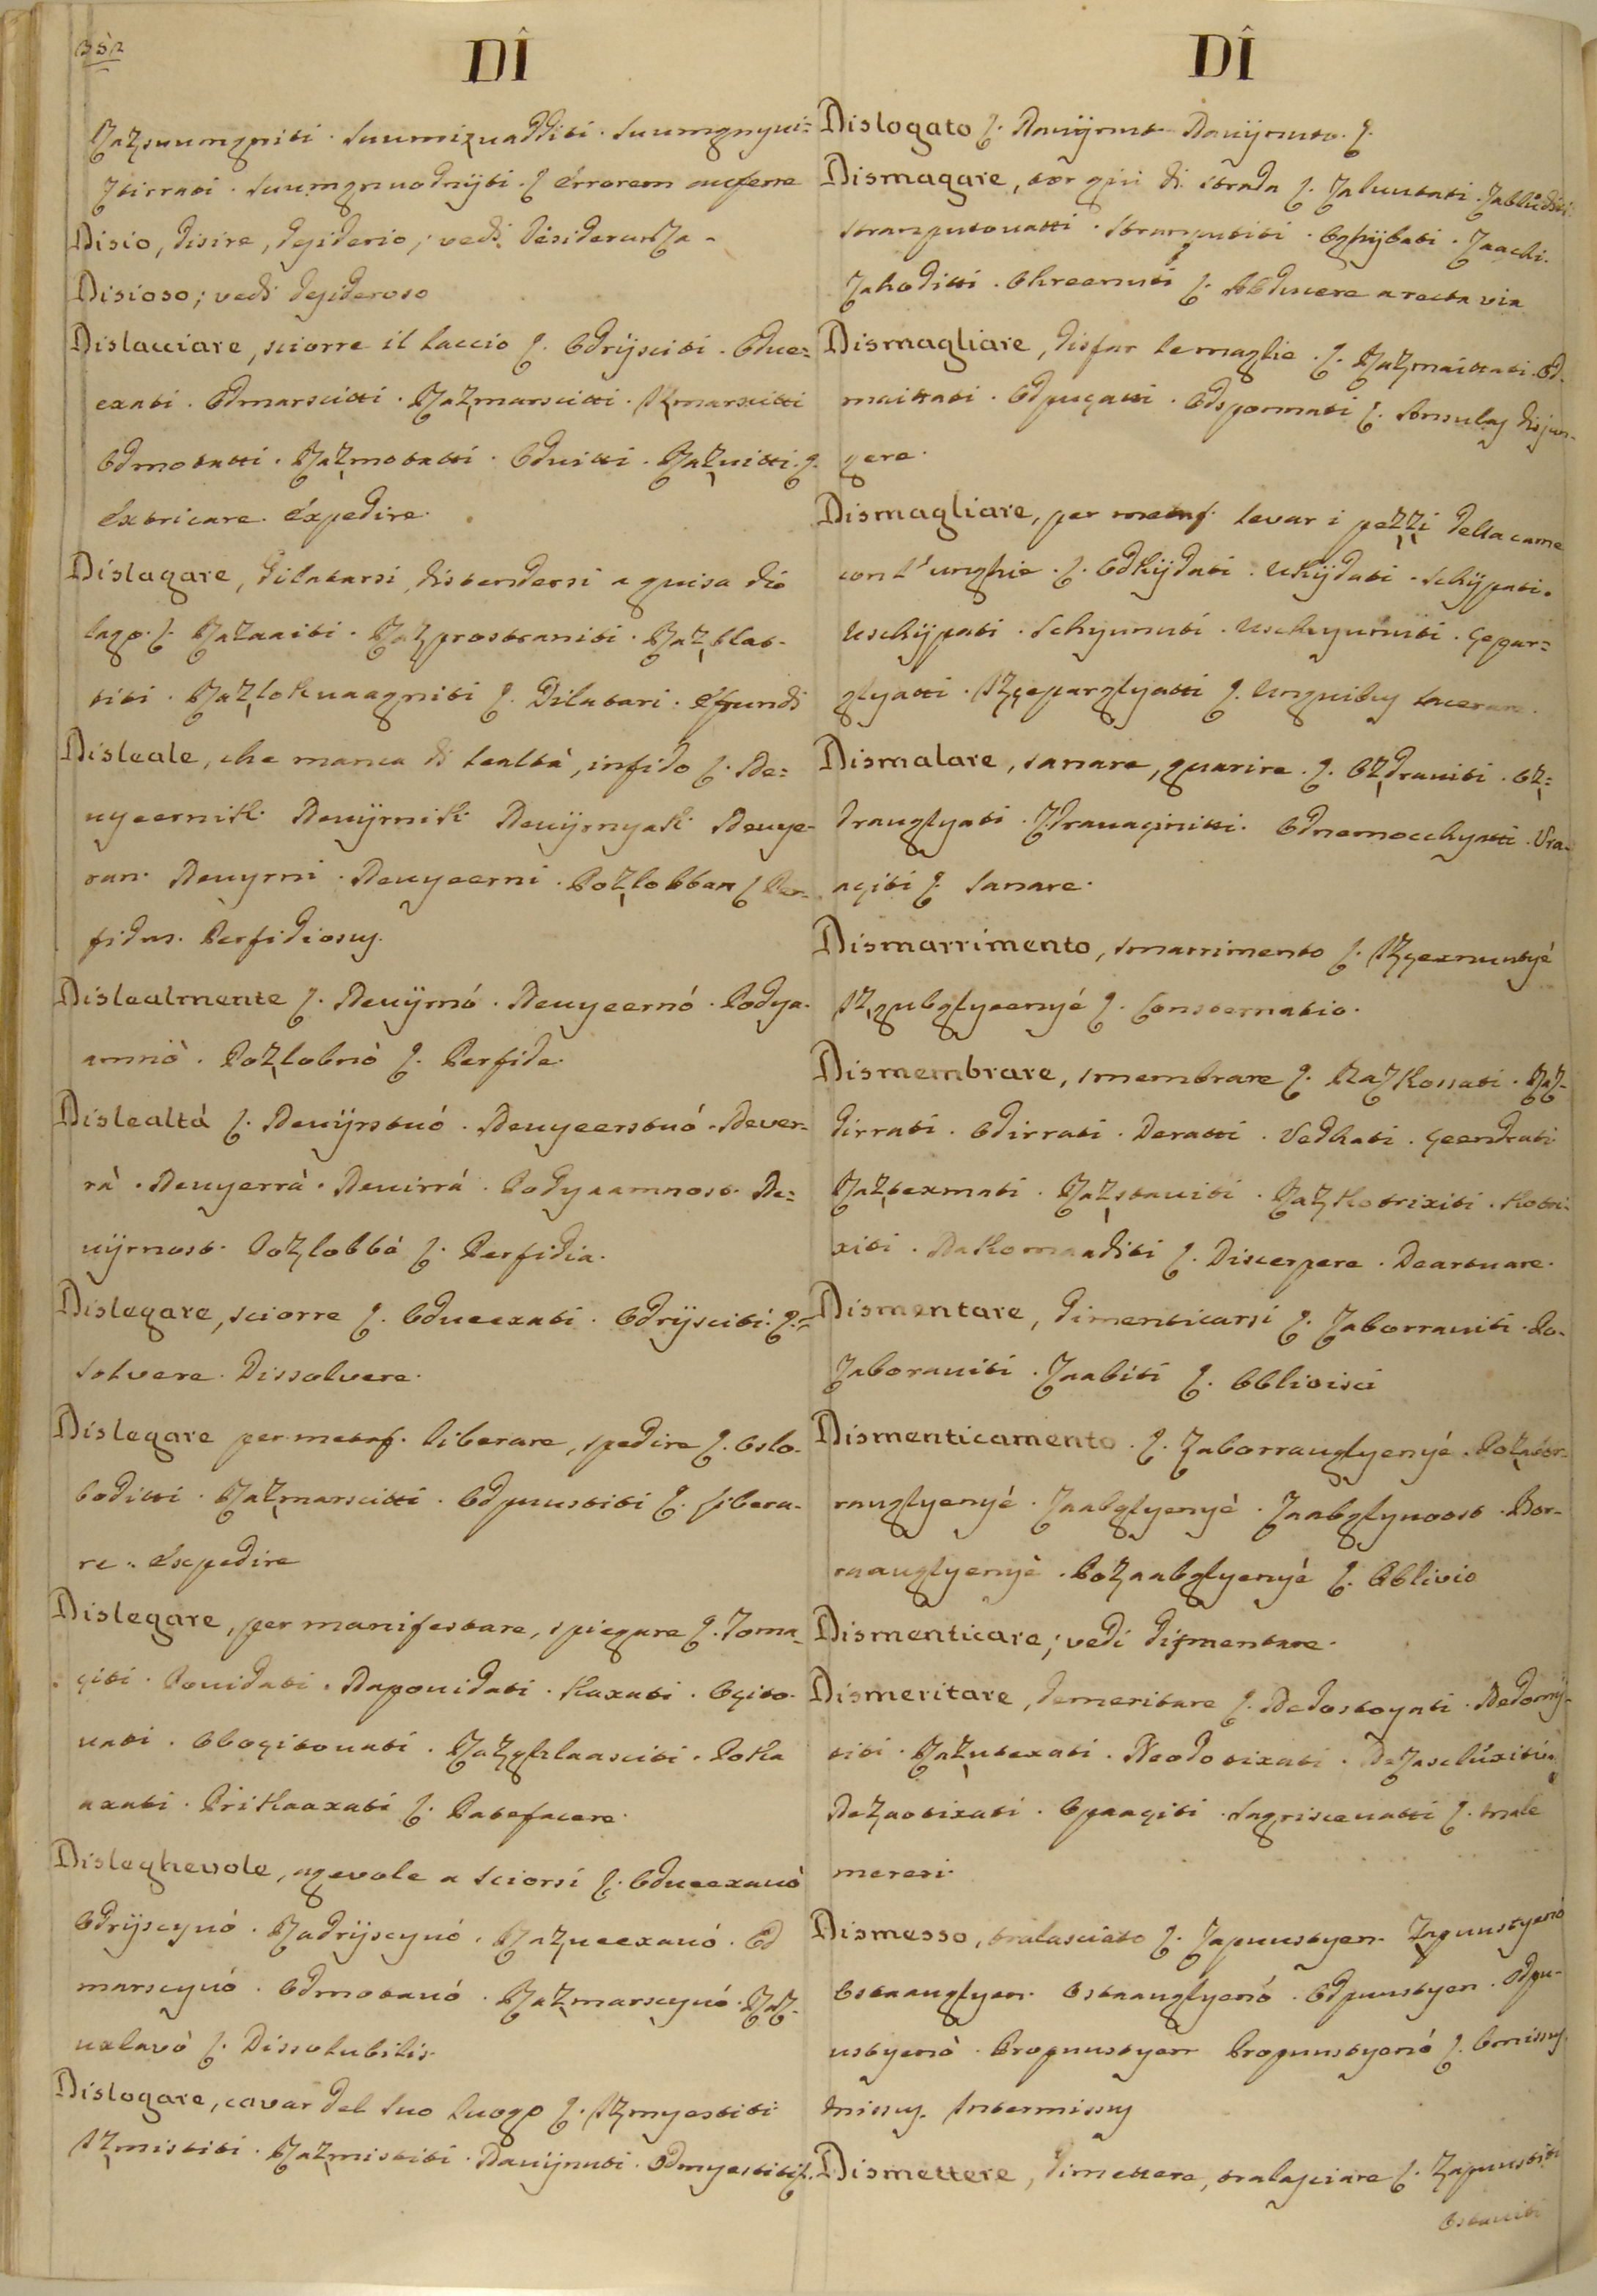 352
DÎ
Razsuumgniti. Suumizuadditi. Suumgnyui=
ztirrati. Suumgnuodnijti. ʃ. érrorem auferre
Disio, disire, desiderio; vedi desideranza.
Disioso; vedi desideroso
Dislacciare, sciorre il laccio ʃ. Odrijsciti. Odue=
exati. Odmarscitti. Razmarscitti. Izmarscitti
Odmotatti. Razmotatti. Oduitti. Razuitti. ʃ.
Extricare. Éxpedire.
Dislagare, dilatarsi, distendersi a guisa di
lago. ʃ. Razaaiti. Razprostraniti. Razblat-
titi. Razlokuaagniti ʃ. Dilatari. Effundi
Disleale, che manca di lealtà, infido ʃ. Ne=
uyeernik. Neuijrnik. Neuijrnyak. Neuye-
ran. Neuyrni. Neuyeerni. Pozlobban ʃ. Per-
fidus. Perfidiosus.
Dislealmente ʃ. Neuijrnó. Neuyeernó. Podya-
amnò. Pozlobnò ʃ. Perfide.
Dislealtá ʃ. Neuijrstuó. Neuyeerstuó. Never-
rà. Neuyerrà. Neuirrá. Podyaamnost. Ne=
uijrnost. Pozlobbà ʃ. Perfidia.
Dislegare, sciorre ʃ. Odueexati. Odrijsciti. ʃ.
Solvere. Dissolvere.
Dislegare per metaf. liberare, spedire ʃ. Oslo-
boditti. Razmarscitti. Odpuustiti ʃ. Libera-
re. Expedire
Dislegare, per manifestare, spiegare ʃ. Toma-
çiti. Pouidati. Napouidati. Kaxati. Oçito-
uati. Oboçitouati. Razghlaasciti. Poka
axati. Prikaaxati ʃ. Patefacere.
Disleghevole, agevole a sciorsi ʃ. Odueexauò
Odrijscyuó. Razdrijscyuó. Razueexauó. Od
marscyuó. Odmotauó. Razmarscyuó. Raz-
uxlavò ʃ. Dissolubilis.
Dislogare, cavar del suo luogo ʃ. Izmyestiti
Izmistiti. Razmistiti. Nauijnuti. Odmyestiti ʃ.
DÎ
Dislogato ʃ. Nauijnut. Nauijnuto. ʃ.
Dismagare, tor giú di strada ʃ. Zaluutati. Zabluditi.
Stranputouatti. Stranputiti. Oghijbati. Zaachi.
Zahoditti. Okreenuti ʃ. Abducere a recta via
Dismagliare, disfar le maglie. ʃ. Razmaittati. Od-
maittati. Odpuçatti. Odsponnati ʃ. Ansulas disjun-
gere.
Dismagliare, per metaf. levar i pezzi della carne
con l'unghie. ʃ. Odkijdati. Ukijdati. Schijpati.
Uschijpati. Schyunuti. Uschyunuti. Çepar=
glyatti. Izçeparglyatti ʃ. Unguibus lacerare.
Dismalare, sanare, guarire. ʃ. Ozdraviti. Oz=
drauglyati. Zdrauaçinitti. Odnemocchyatti. Vra-
açiti ʃ. Sanare.
Dismarrimento, smarrimento ʃ. Izçexnuutyé
Izgubglyeenyé ʃ. Consternatio.
Dismembrare, smembrare ʃ. Razkossati. Raz-
dirrati. Odirrati. Deratti. Vedhati. Çeendrati
Raztexmati. Razstauiti. Razkotrixiti. Kotri-
xiti. Nakomaaditi ʃ. Discerpere. Deartuare.
Dismentare, dimenticarsi ʃ. Zaborrauiti. Po-
zaborauiti. Zaabiti ʃ. Oblivisci
Dismenticamento. ʃ. Zaborrauglyenyé. Pozabor-
rauglyenyé. Zaabglyenyé. Zaabglyuoost. Bor-
raauglyenyé. Pozaabglyenyé ʃ. Oblivio
Dismenticare; vedi dismentare.
Dismeritare, demeritare ʃ. Nedostoyati. Nedomij-
titi. Razutexati. Neodotixati. Nezasclúxiti.
Nezaotixati. Opaaçiti. Sagriscenatti ʃ. Male
mereri.
Dismesso, tralasciato ʃ. Zapuustyen. Zapuustyenó
Ostaauglyen. Ostaauglyenó. Odpuustyen. Odpu-
ustyenò. Propuustyen Propuustyenó ʃ. Omissus.
Missus. Intermissus
Dismettere, dimettere, tralasciare ʃ. Zapuustiti
Ostauiti